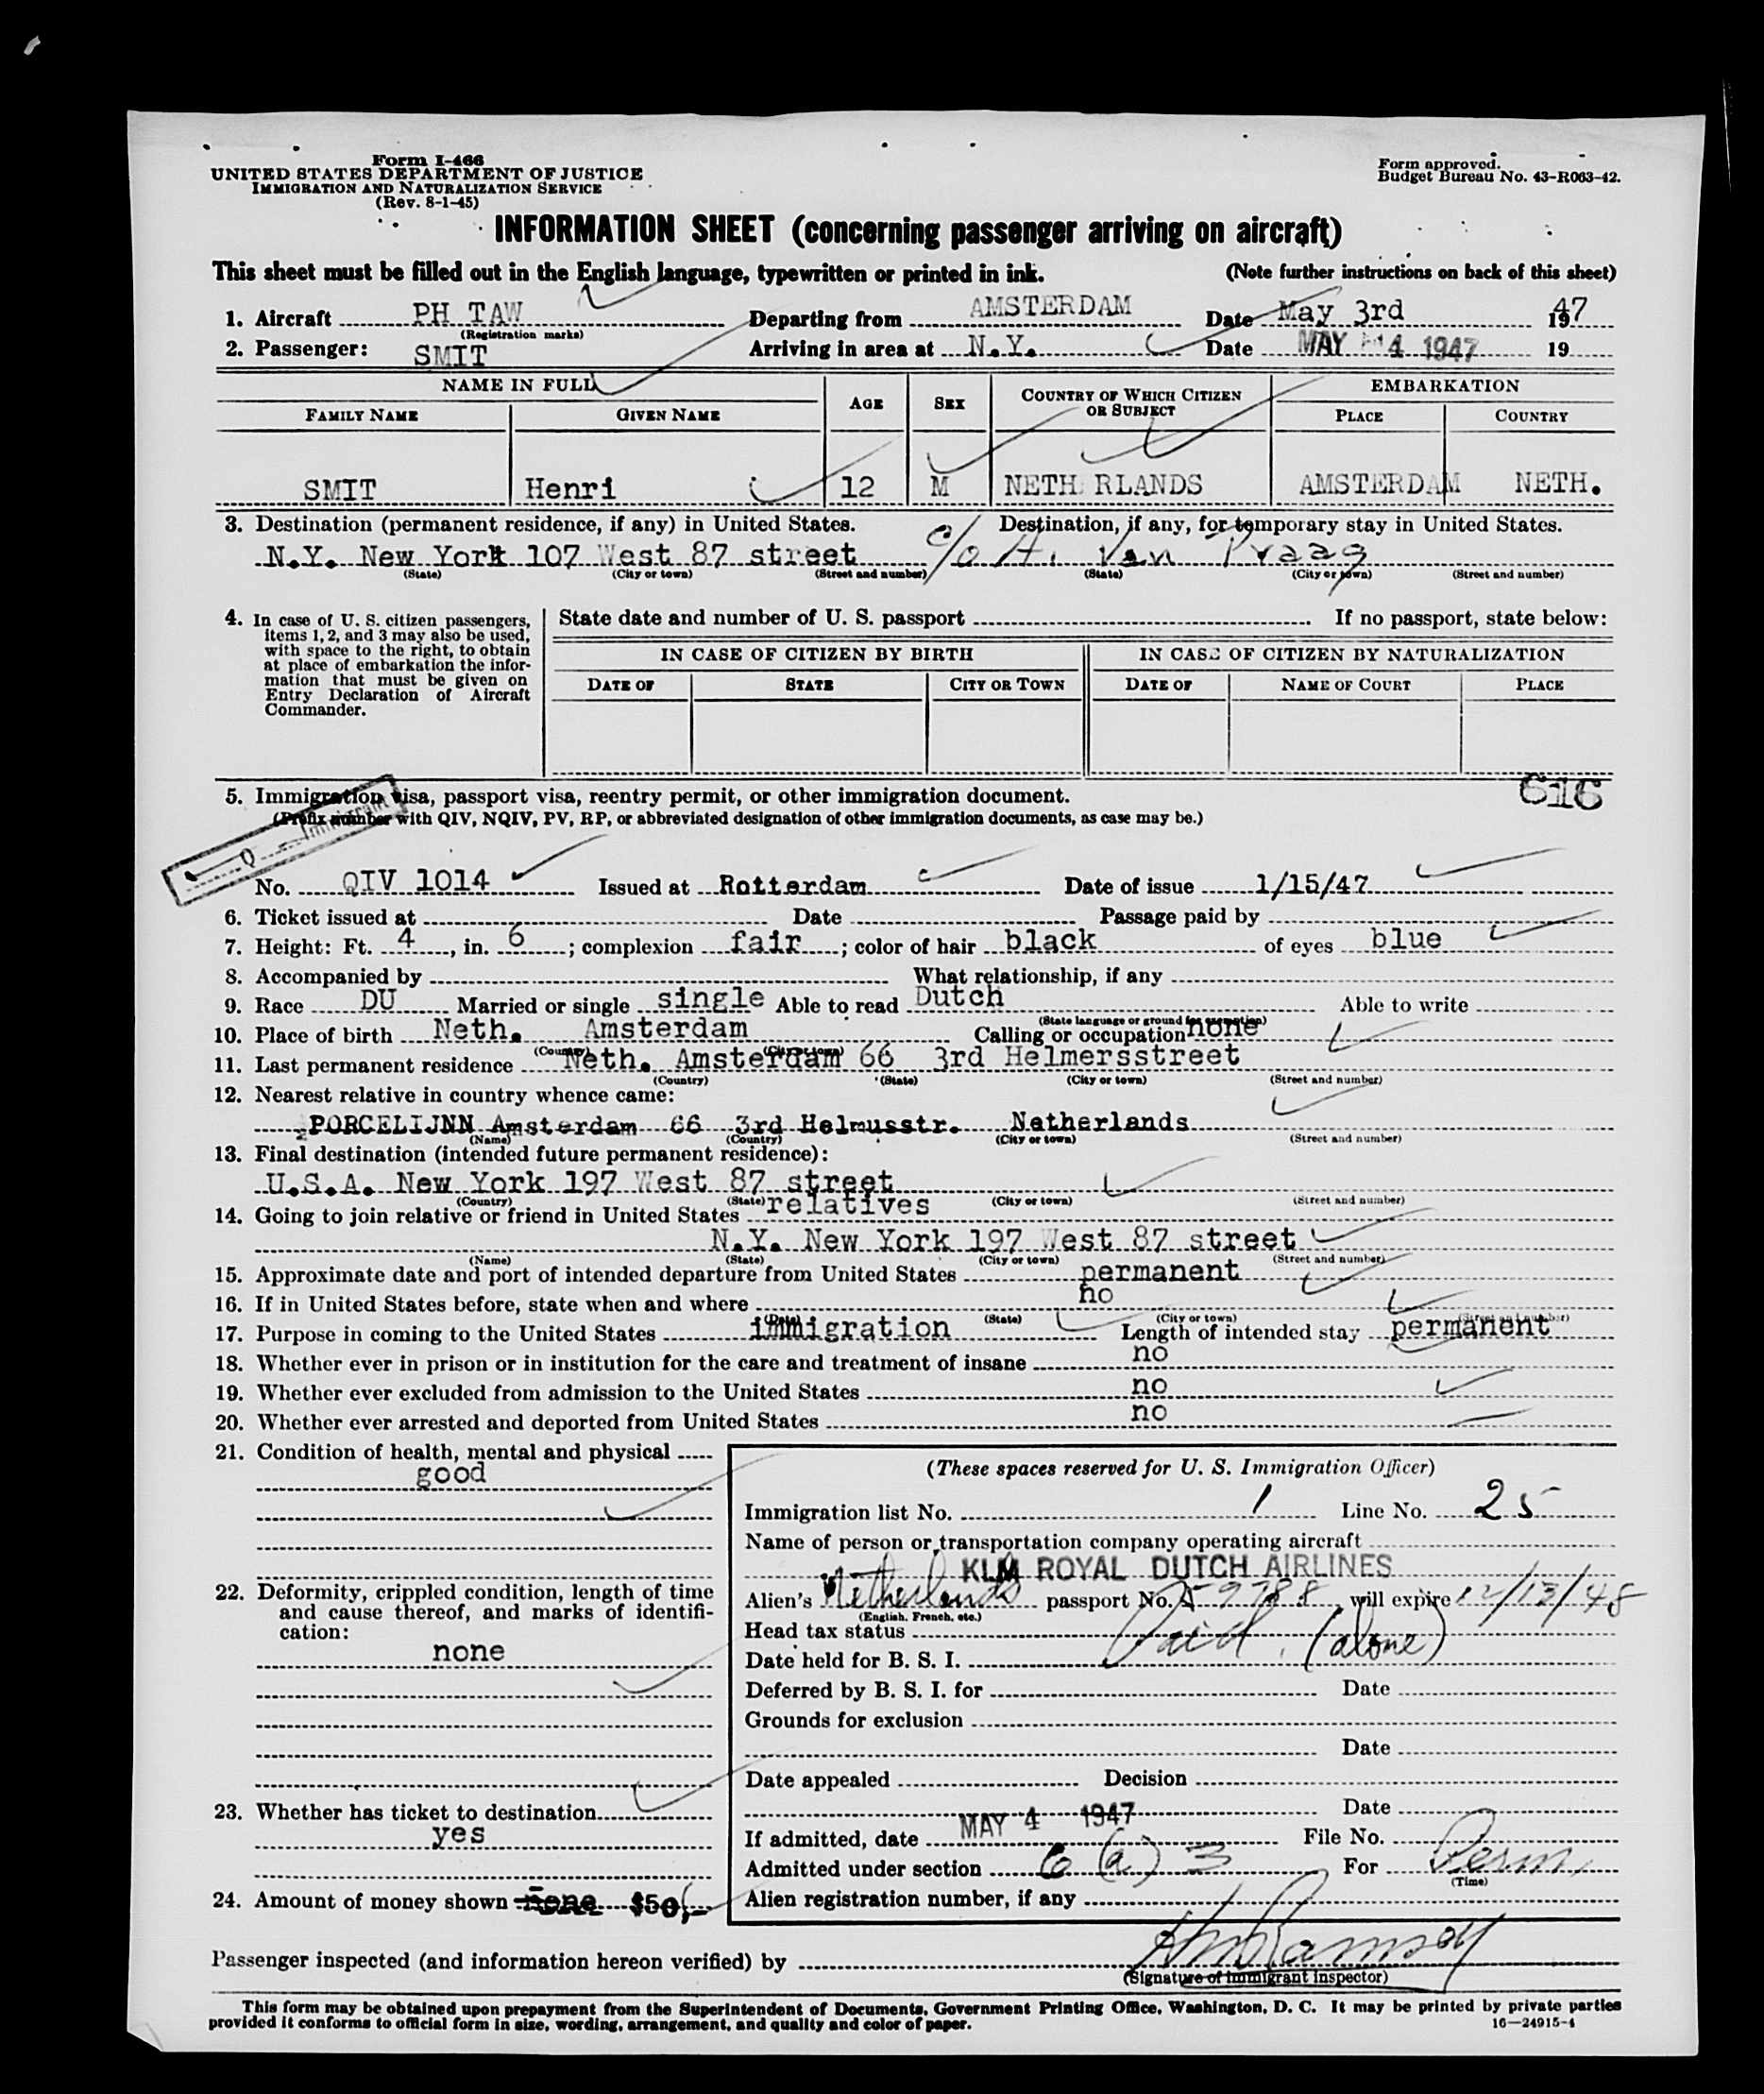 Form I-466
UNITED STATES DEPARTMENT OF JUSTICE
IMMIGRATION AND NATURALIZATION SERVICE
(Rev. 8-1-45)
Form approved.
Budget Bureau No. 43-R063-42.
INFORMATION SHEET (concerning passenger arriving on aircraft)
This sheet must be filled out in the English language, typewritten or printed in ink. (Note further instructions on back of this sheet)
1. Aircraft PH TAW Departing from AMSTERDAM Date May 3rd 1947
(Registration marks)
2. Passenger: SMIT Arriving in area at N.Y. Date MAY 4 1947 19
NAME IN FULL AGE SEX COUNTRY OF WHICH CITIZEN OR SUBJECT EMBARKATION
FAMILY NAME GIVEN NAME PLACE COUNTRY
SMIT Henri 12 M NETH RLANDS AMSTERDAM NETH.
3. Destination (permanent residence, if any) in United States. Destination, if any, for temporary stay in United States.
N.Y. New York 107 West 87 street c/o H. Van Praag
(State) (City or town) (Street and number) (State) (City or town) (Street and number)
4. In case of U. S. citizen passengers, items 1, 2, and 3 may also be used, with space to the right, to obtain at place of embarkation the information that must be given on Entry Declaration of Aircraft Commander.
State date and number of U. S. passport If no passport, state below:
IN CASE OF CITIZEN BY BIRTH IN CASE OF CITIZEN BY NATURALIZATION
DATE OF STATE CITY OR TOWN DATE OF NAME OF COURT PLACE
616
5. Immigration visa, passport visa, reentry permit, or other immigration document.
(Prefix number with QIV, NQIV, PV, RP, or abbreviated designation of other immigration documents, as case may be.)
Q
No. QIV 1014 Issued at Rotterdam Date of issue 1/15/47
6. Ticket issued at Date Passage paid by
7. Height: Ft. 4, in. 6; complexion fair; color of hair black of eyes blue
8. Accompanied by What relationship, if any
9. Race DU Married or single single Able to read Dutch Able to write
(State language or ground for exemption)
10. Place of birth Neth. Amsterdam Calling or occupation none
(Country) (City or town)
11. Last permanent residence Neth. Amsterdam 66 3rd Helmersstreet
(Country) (State) (City or town) (Street and number)
12. Nearest relative in country whence came:
PORCELIJNN Amsterdam 66 3rd Helmusstr. Netherlands
(Name) (Country) (City or town) (Street and number)
13. Final destination (intended future permanent residence):
U.S.A. New York 197 West 87 street
(Country) (State) (City or town) (Street and number)
14. Going to join relative or friend in United States relatives
N.Y. New York 197 West 87 street
(Name) (State) (City or town) (Street and number)
15. Approximate date and port of intended departure from United States permanent
16. If in United States before, state when and where no
(Date) (State) (City or town) (Street and number)
17. Purpose in coming to the United States immigration Length of intended stay permanent
18. Whether ever in prison or in institution for the care and treatment of insane no
19. Whether ever excluded from admission to the United States no
20. Whether ever arrested and deported from United States no
21. Condition of health, mental and physical
good
22. Deformity, crippled condition, length of time and cause thereof, and marks of identification:
none
23. Whether has ticket to destination
yes
24. Amount of money shown none $50,-
(These spaces reserved for U. S. Immigration Officer)
Immigration list No. 1 Line No. 25
Name of person or transportation company operating aircraft
KLM ROYAL DUTCH AIRLINES
Alien's Netherlands passport No. A 59788, will expire 12/13/48
(English, French, etc.)
Head tax status Paid. (alone)
Date held for B. S. I.
Deferred by B. S. I. for Date
Grounds for exclusion
Date
Date appealed Decision
Date
If admitted, date MAY 4 1947 File No.
Admitted under section 6 (a) 3 For Perm.
(Time)
Alien registration number, if any
Passenger inspected (and information hereon verified) by
(Signature of immigrant inspector)
This form may be obtained upon prepayment from the Superintendent of Documents, Government Printing Office, Washington, D. C. It may be printed by private parties
provided it conforms to official form in size, wording, arrangement, and quality and color of paper. 16—24915-4